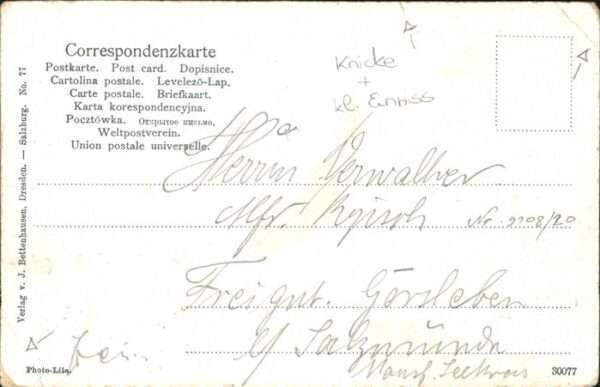 Correspondenzkarte
Postkarte. Post card. Dopisnice.
Cartolina postale. Levelező-Lap.
Carte postale. Briefkaart.
Karta korespondencyjna.
Pocztówka. Открытое письмо.
Weltpostverein.
Union postale universelle.
Knicke
+
kl. Einriss
Herrn Verwalter
Alfr.
Nr. 2208/20
Freigut. Görsleben
b/ Salzmünde
Mansf. Seekreis
frei
Verlag v. J. Bettenhausen, Dresden. — Salzburg. No. 77
Photo-Lila.
30077